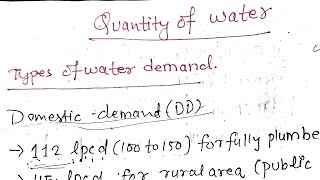 Quantity of water
Types of water demand.
Domestic demand (DD)
→ 112 lpcd (100 to 150) for fully plumbe
lpcd for rural area (public